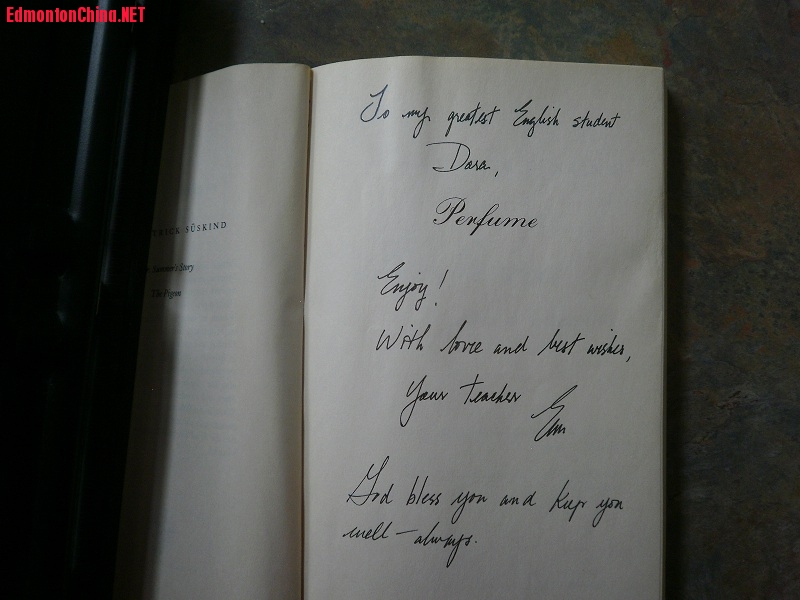 EdmontonChina.NET
TRICK SÜSKIND
Summer's Story
The Pigeon
To my greatest English student
Dara,
Perfume
Enjoy!
With love and best wishes,
Your teacher
God bless you and keep you
well – always.